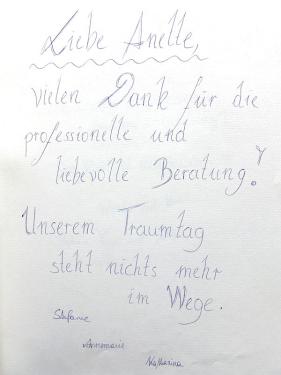 Liebe Anelle,
vielen Dank für die
professionelle und
liebevolle Beratung!
Unserem Traumtag
steht nichts mehr
im Wege.
Stefanie
Annemarie
Katharina